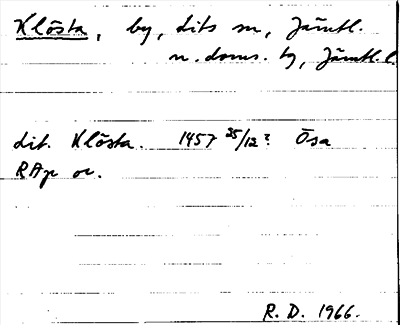 Klösta, by, Lits sn, Jämtl.
n. doms. by, Jämtl. l.
Lit. Klösta. 1457 25/12? Ösa
RAp or.
R. D. 1966.